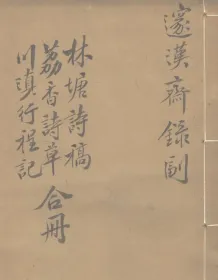 邃漢齋錄副
林塘詩稿
荔香詩草
川滇行程記
合冊